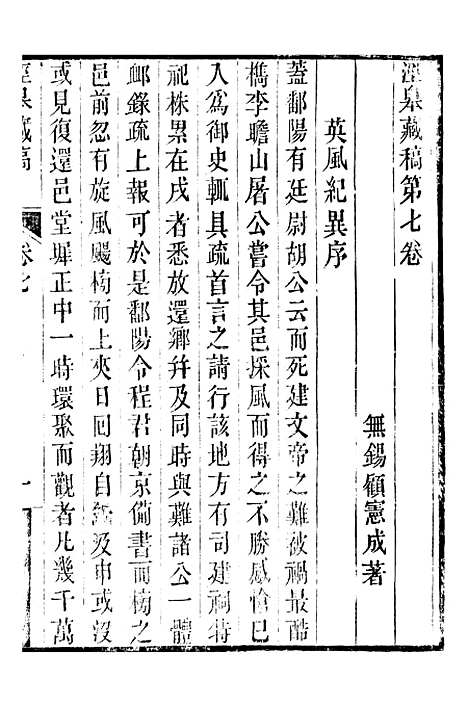 涇臯藏稿第七卷
無錫顧憲成著
英風紀異序
蓋鄱陽有廷尉胡公云而死建文帝之難被禍最酷
檇李瞻山屠公嘗令其邑採風而得之不勝感愴已
入爲御史輒具疏首言之請行該地方有司建祠特
祀株累在戍者悉放還鄉幷及同時與難諸公一體
䘏錄疏上報可於是鄱陽令程君朝京備書而榜之
邑前忽有旋風颺榜而上夾日回翔自 及申或沒
或見復還邑堂墀正中一時環聚而觀者凡幾千萬
涇臯藏稿
卷七
一